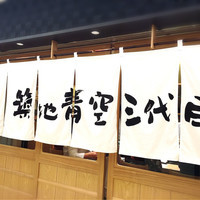 築地青空三代目